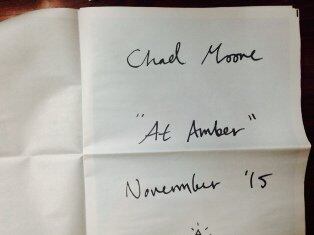 Chad Moore
"At Amber"
November '15